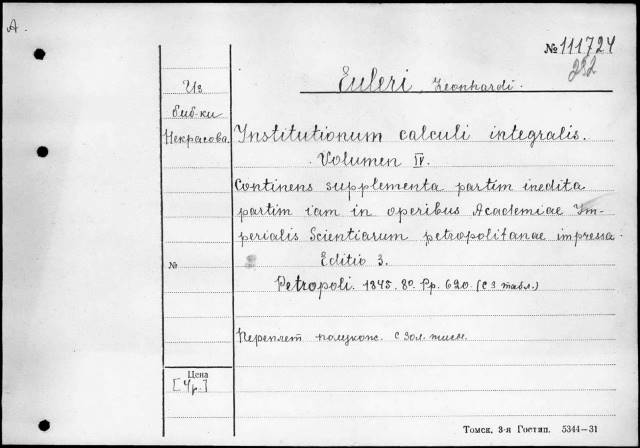 A.
№ 111724
232
Euleri, Leonhardi.
Из
биб-ки
Некрасова.
Institutionum calculi integralis.
Volumen IV.
Continens supplementa partim inedita
partim iam in operibus Academiae Im-
perialis Scientiarum petropolitanae impressa
Editio 3.
№
Petropoli. 1845. 8º. Pp. 620. (с 3 табл.)
Переплет полукож. с зол. тисн.
Цена
[4р.]
Томск, 3-я Гостип. 5344—31